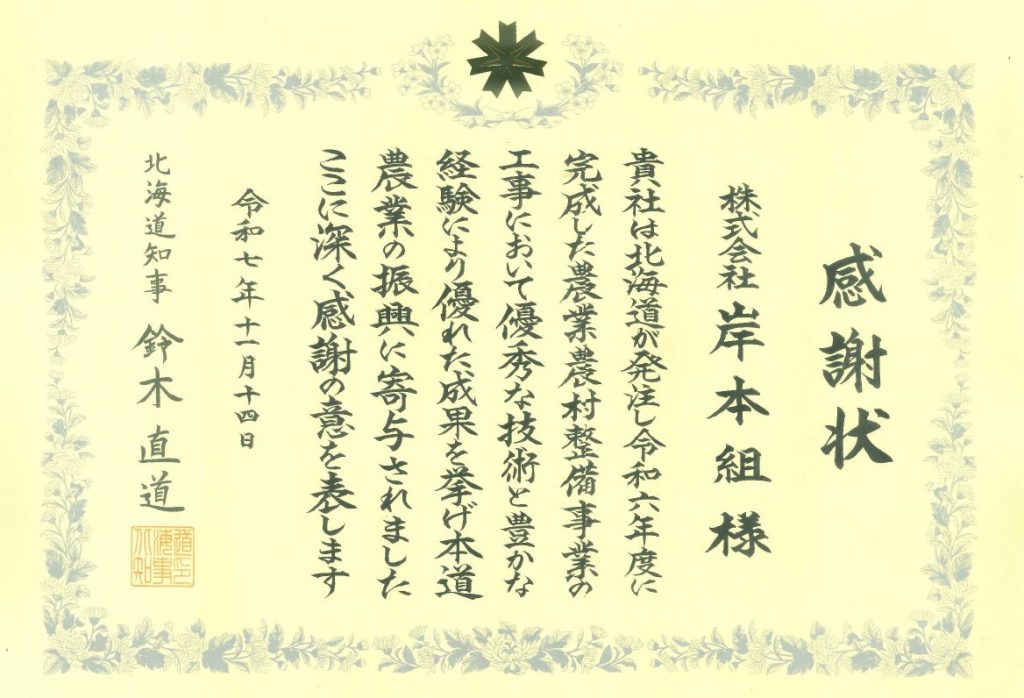 感謝状
株式会社 岸本組 様
貴社は北海道が発注し令和六年度に
完成した農業農村整備事業の
工事において優秀な技術と豊かな
経験により優れた成果を挙げ本道
農業の振興に寄与されました
ここに深く感謝の意を表します
令和七年十一月十四日
北海道知事 鈴木直道